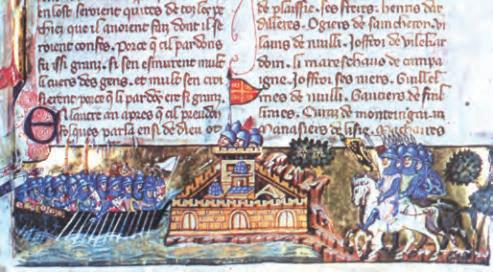 en lost seroient quites de toz les pe
chiez que il auoient faiz dont il se
roient confes. Por ce q cil pardons
fu issi granz. si sen esmurent mult
li cuers des genz. et mult sen croi
sierent por ce q li pardõ ere si granz.
E l autre an apres q cil preudom
folques parla ensi de dieu ot
de plaissie. ses freres. henris dar
dilleres. Ogiers de saincheron. vi
lains de nuilli. Joffroi de vilehar
doin. li mareschaus de campa
igne. Joffroi ses niers. Guillel
mes de nuilli. Gautiers de fuil
lines. de monteingni.
Manasiers de lisle. Machaires